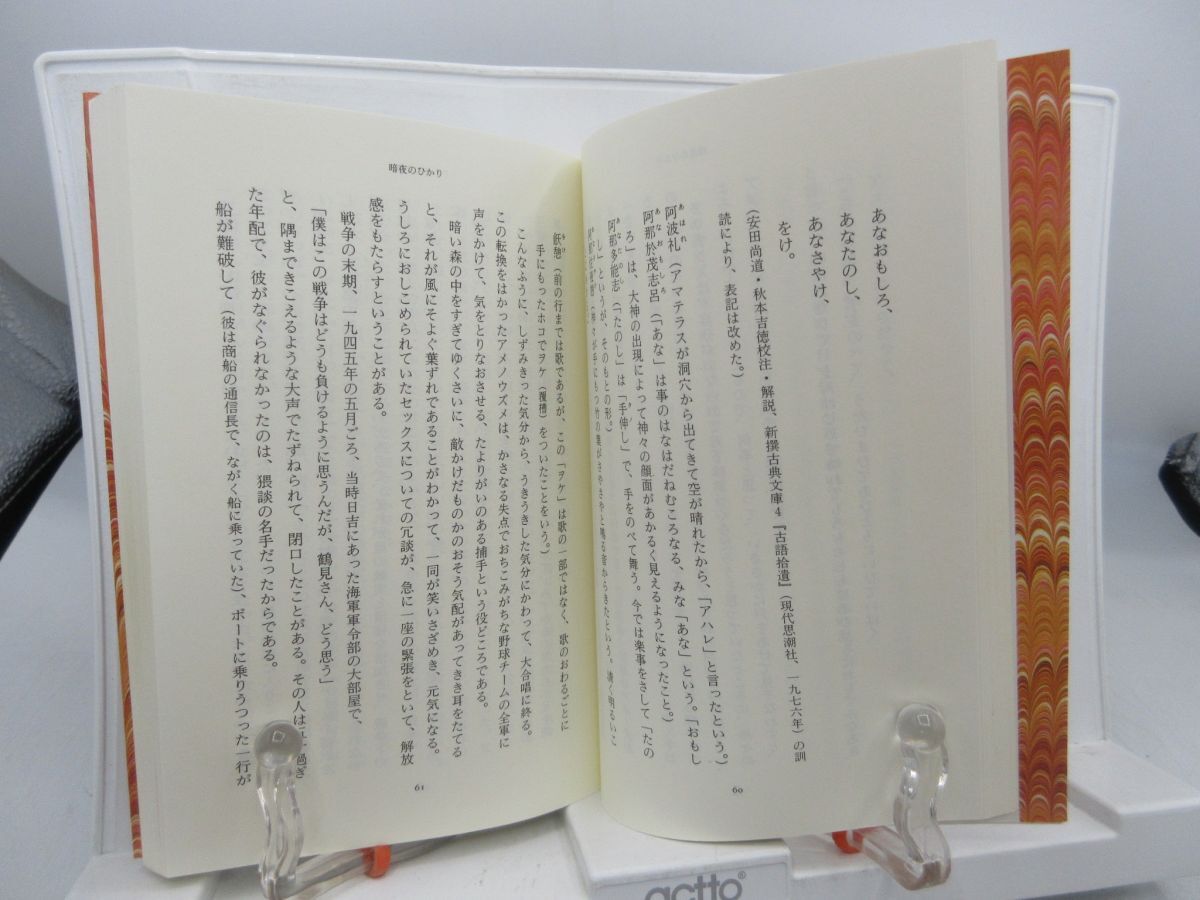 あなおもしろ、
あなたのし、
あなさやけ、
をけ。
(安田尚道・秋本吉徳校注・解説、新撰古典文庫4『古語拾遺』(現代思潮社、一九七六年)の訓
読により、表記は改めた。)
阿波礼(アマテラスが洞穴から出てきて空が晴れたから、「アハレ」と言ったという。)
阿那於茂志呂(「あな」は事のはなはだねむころなる、みな「あな」という。「おもし
ろ」は、大神の出現によって神々の顔面があかるく見えるようになったこと。)
阿那多能志(「たのし」は「手伸し」で、手をのべて舞う。今では楽事をさして「たの
し」というが、そのもとの形。)
60
暗夜のひかり
飫憩(前の行までは歌であるが、この「ヲケ」は歌の一部ではなく、歌のおわるごとに
手にもったホコでヲケ(覆槽)をついたことをいう。)
こんなふうに、しずみきった気分から、うきうきした気分にかわって、大合唱に終る。
この転換をはかったアメノウズメは、かさなる失点でおちこみがちな野球チームの全軍に
声をかけて、気をとりなおさせる、たよりがいのある捕手という役どころである。
暗い森の中をすぎてゆくさいに、敵かけだものかのおそう気配があってきき耳をたてる
と、それが風にそよぐ葉ずれであることがわかって、一同が笑いさざめき、元気になる。
うしろにおしこめられていたセックスについての冗談が、急に一座の緊張をといて、解放
感をもたらすということがある。
戦争の末期、一九四五年の五月ごろ、当時日吉にあった海軍軍令部の大部屋で、
「僕はこの戦争はどうも負けるように思うんだが、鶴見さん、どう思う」
と、隅まできこえるような大声でたずねられて、閉口したことがある。その人は
た年配で、彼がなぐられなかったのは、猥談の名手だったからである。
船が難破して(彼は商船の通信長で、ながく船に乗っていた)、ボートに乗りうつった一行が
61
actto®